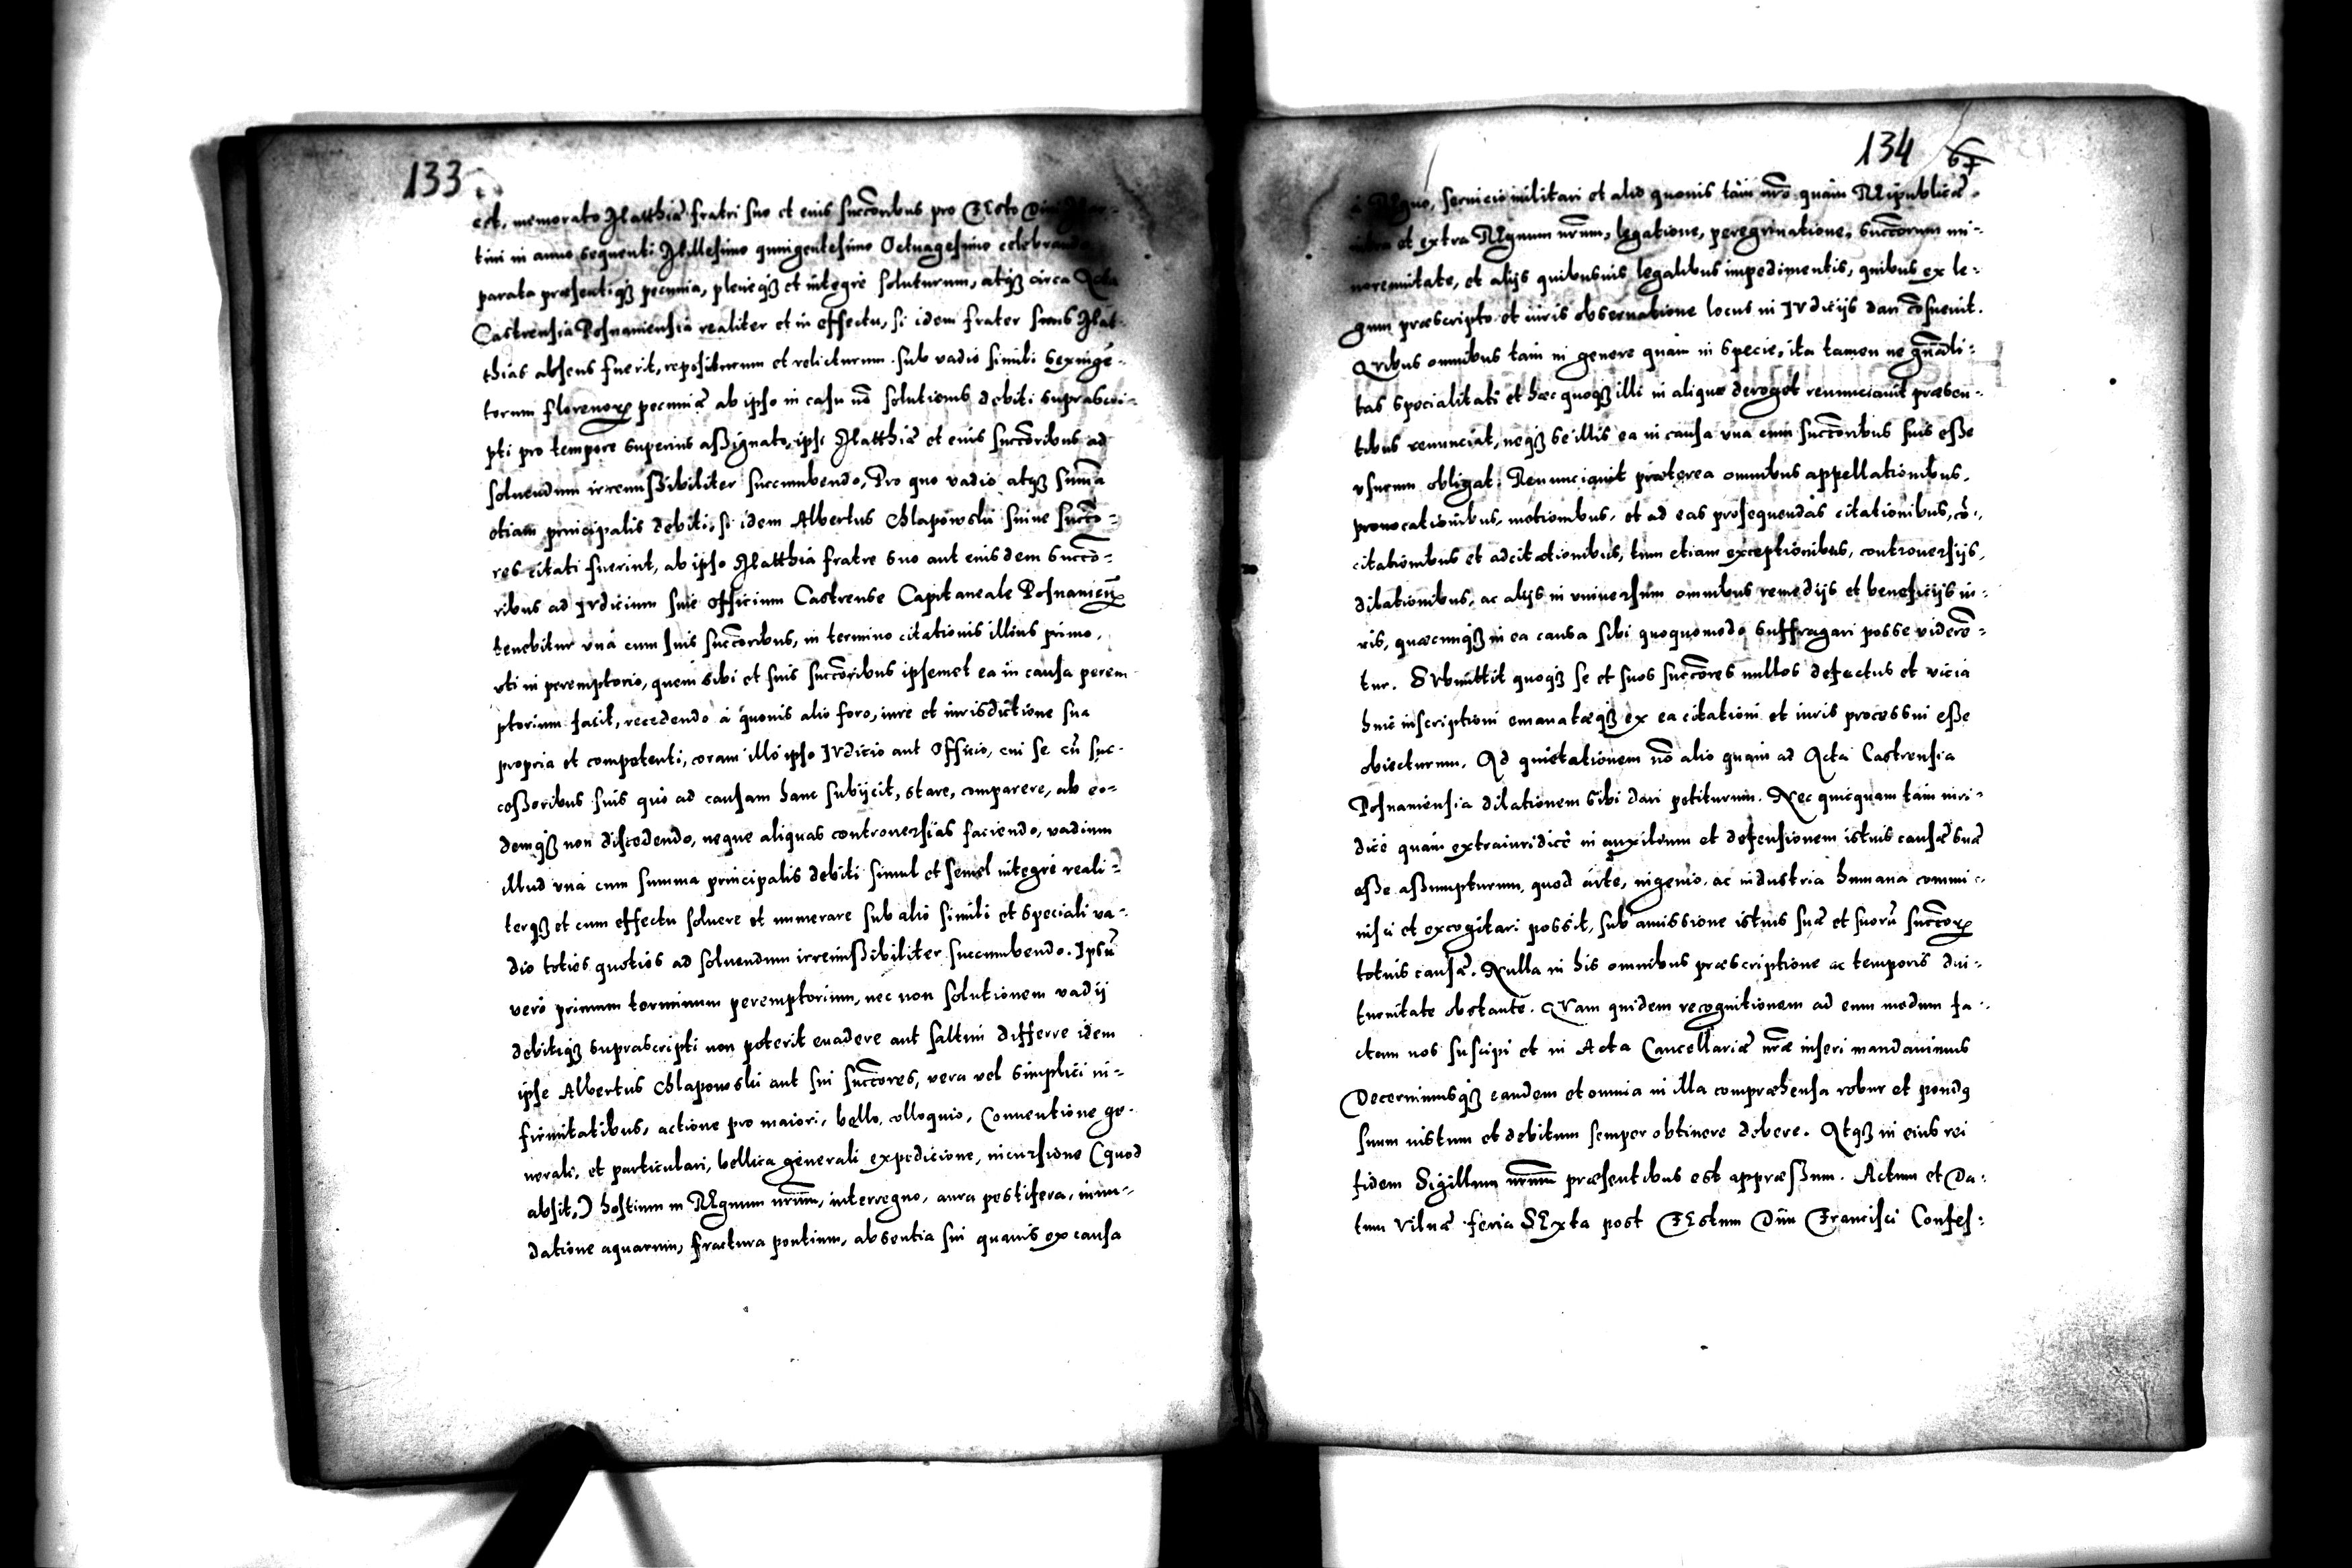 133
est, memorato Matthiæ fratri suo et eius succōribus pro FEsto Diui Mar-
tini in anno sequenti Millesimo quingentesimo Octuagesimo celebrando
parata præsentiqȝ pecunia, pleneqȝ et integrè soluturum, atqȝ circa Acta
Castrensia Posnaniensia realiter et in effectu, si idem frater suus Mat-
thias absens fuerit, repositurum et relicturum. sub vadio simili sexingē-
torum florenorꝝ pecuniæ ab ipso in casu nō solutionis debiti suprascri-
pti pro tempore superius assignato, ipsi Matthiæ et eius succōribus ad
soluendum irremissibiliter succumbendo, Pro quo vadio atqȝ sum̄a
etiam principalis debiti, si idem Albertus Chlapowski suiue succō-
res citati fuerint, ab ipso Matthia fratre suo aut eiusdem succō-
ribus ad IVdicium siue officium Castrense Capitaneale Posnanień
tenebitur vnà cum suis succōribus, in termino citationis illius primo,
vti in peremptorio, quem sibi et suis succōribus ipsemet ea in causa perem
ptorium facit, recedendo à quouis alio foro, iure et iurisdictione sua
propria et competenti, coram illo ipso IVdicio aut Officio, cui se cū suc-
cessoribus suis quo ad causam hanc subijcit, stare, comparere, ab eo-
demqȝ non discedendo, neque aliquas controuersias faciendo, vadium
illud vnà cum summa principalis debiti simul et semel integrè reali-
terqȝ et cum effectu soluere et numerare sub alio simili et speciali va-
dio toties quoties ad soluendum irremissibiliter succumbendo. Ipsū
verò primum terminum peremptorium, nec non solutionem vadij
debitiqȝ suprascripti non poterit euadere aut saltim differre idem
ipse Albertus Chlapowski aut sui succōres, vera vel simplici in-
firmitatibus, actione pro maiori, bello, colloquio, Conuentione ge-
nerali, et particulari, bellica generali expedicione, incursione (quod
absit,) hostium in REgnum nr̄um, interregno, aura pestifera, inun-
datione aquarum, fractura pontium, absentia sui quauis ex causa
134
67
à REgno, seruicio militari et alio quouis tàm nr̄o quàm REipublicæ.
intra et extra REgnum nr̄um, legatione, peregrinatione, succōrum mi-
norennitate, et alijs quibusuis legalibus impedimentis, quibus ex le-
gum præscripto et iuris obseruatione locus in IVdicijs dari cōsueuit.
QVibus omnibus tàm in genere quàm in specie, ita tamen ne gn̄ali-
tas specialitati et hæc quoqȝ illi in aliquo deroget renunciauit præsen-
tibus renunciat, neqȝ se illis ea in causa vna cum succōribus suis esse
vsurum obligat. Renunciauit præterea omnibus appellationibus,
prouocationibus, motionibus, et ad eas prosequendas citationibus, cō-
citationibus et adcitationibus, tum etiam exceptionibus, controuersijs,
dilationibus, ac alijs in vniuersum omnibus remedijs et beneficijs iu-
ris, quæcunqȝ in ea causa sibi quoquomodo suffragari posse viderē-
tur. SVbmittit quoqȝ se et suos succōres nullos defectus et vicia
huic inscriptioni emanatæqȝ ex ea citationi et iuris processui esse
obiecturum. Ad quietationem nō alio quàm ad Acta Castrensia
Posnaniensia dilationem sibi dari petiturum. Nec quicquam tàm iuri-
dicè quàm extraiuridicè in auxilium et defensionem istius causæ suæ
esse assumpturum, quod arte, ingenio, ac industria humana commi-
nisci et excogitari possit, sub amissione istius suæ et suorū succōrꝝ
totius causæ. Nulla in his omnibus præscriptione ac temporis diu-
turnitate obstante. QVam quidem recognitionem ad eum modum fa-
ctam nos suscipi et in Acta Cancellariæ nr̄æ inseri mandauimus
Decernimusqȝ eandem et omnia in illa compræhensa robur et pondꝰ
suum iustum et debitum semper obtinere debere. Atqȝ in eius rei
fidem Sigillum nr̄um præsentibus est appræssum. Actum et Da-
tum Vilnæ feria SExta post FEstum Diui Francisci Confes-